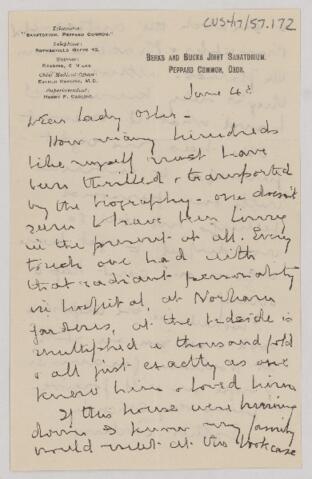 CUS417/57.172
Telegrams:
"SANATORIUM, PEPPARD COMMON."
Telephone:
ROTHERFIELD GREYS 42.
Station:
READING, 6 MILES
Chief Medical Officer:
ESTHER CARLING, M.D.
Superintendent:
HENRY F. CARLING.
BERKS AND BUCKS JOINT SANATORIUM,
PEPPARD COMMON, OXON.
June 4
Dear Lady Osler -
How many hundreds
like myself must have
been thrilled & transported
by the biography - one doesn't
seem to have been living
in the present at all. Every
touch one had with
that radiant personality
in hospital, at Norham
Gardens, at the bedside is
multiplied a thousand fold
& all just exactly as one
knew him & loved him.
If this house were burning
down I know my family
would meet at the bookcase